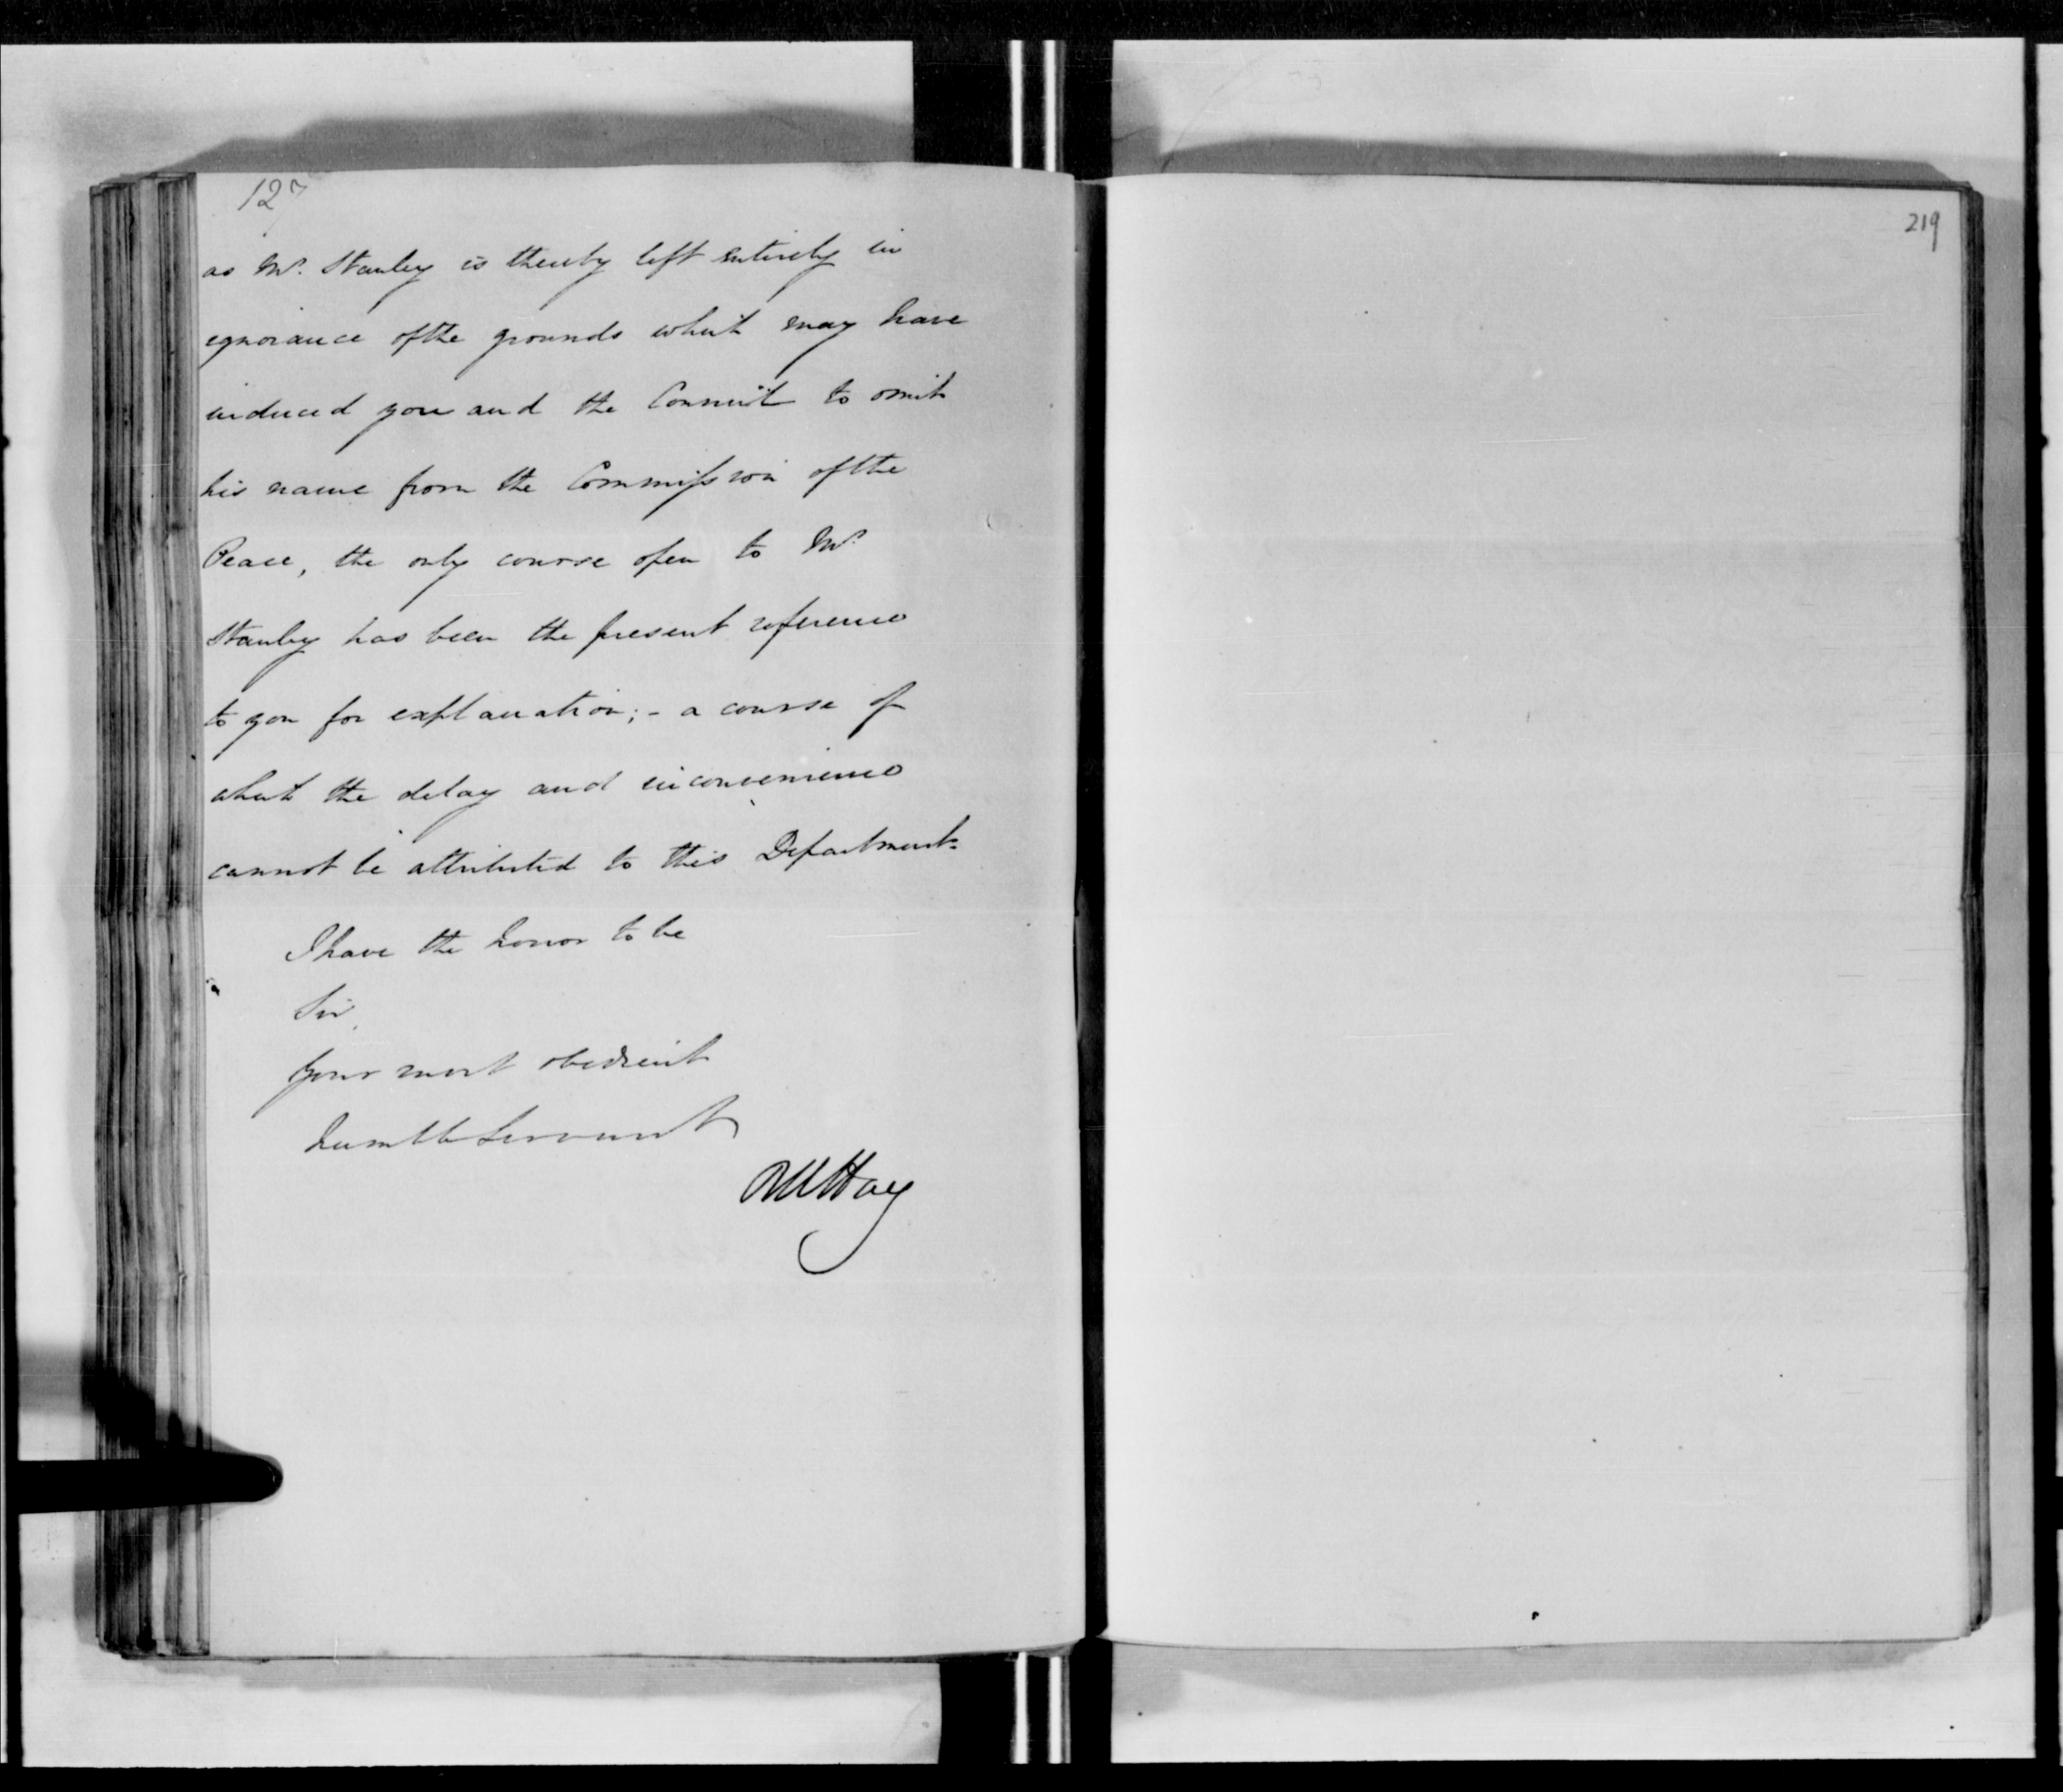 127
as Mr. Stanley is thereby left entirely in
ignorance of the grounds which may have
induced you and the Council to omit
his name from the Commission of the
Peace, the only course open to Mr.
Stanley has been the present reference
to you for explanation; - a course of
which the delay and inconvenience
cannot be attributed to this Department.
I have the honor to be
Sir,
Your most obedient
humble Servant
RW Hay
219